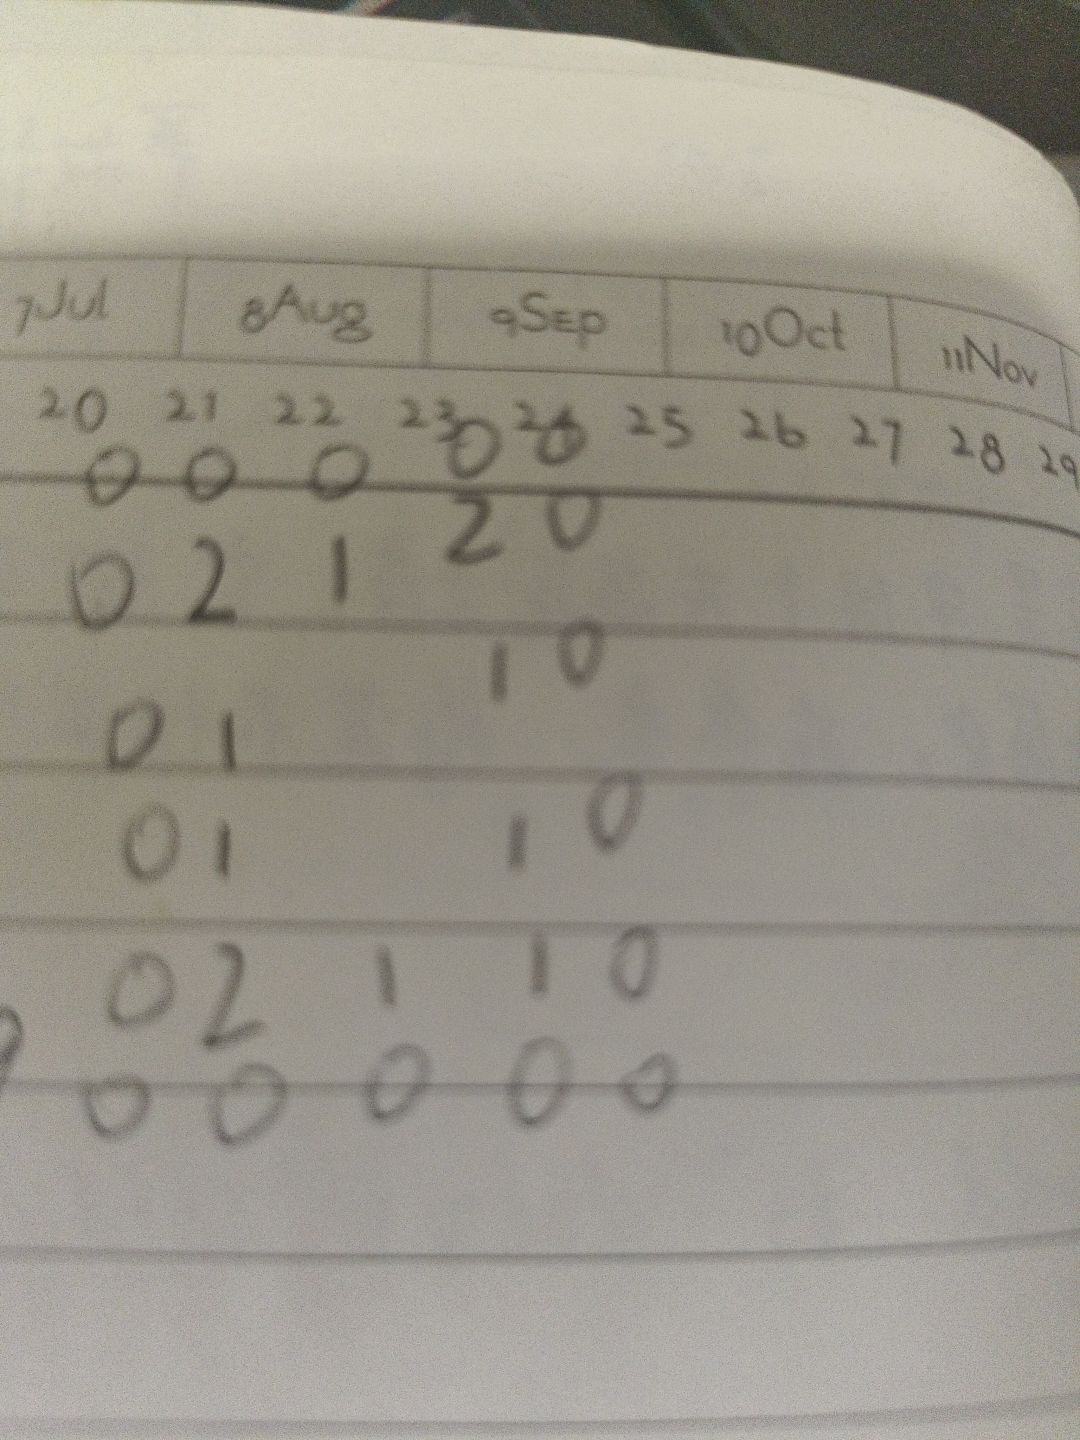 7Jul 8Aug 9Sep 10Oct 11Nov
20 21 22 23 24 25 26 27 28 29
0 0 0 0 0
0 2 1 2 0
0 1 1 0
0 1 1 0
0 2 1 1 0
0 0 0 0 0